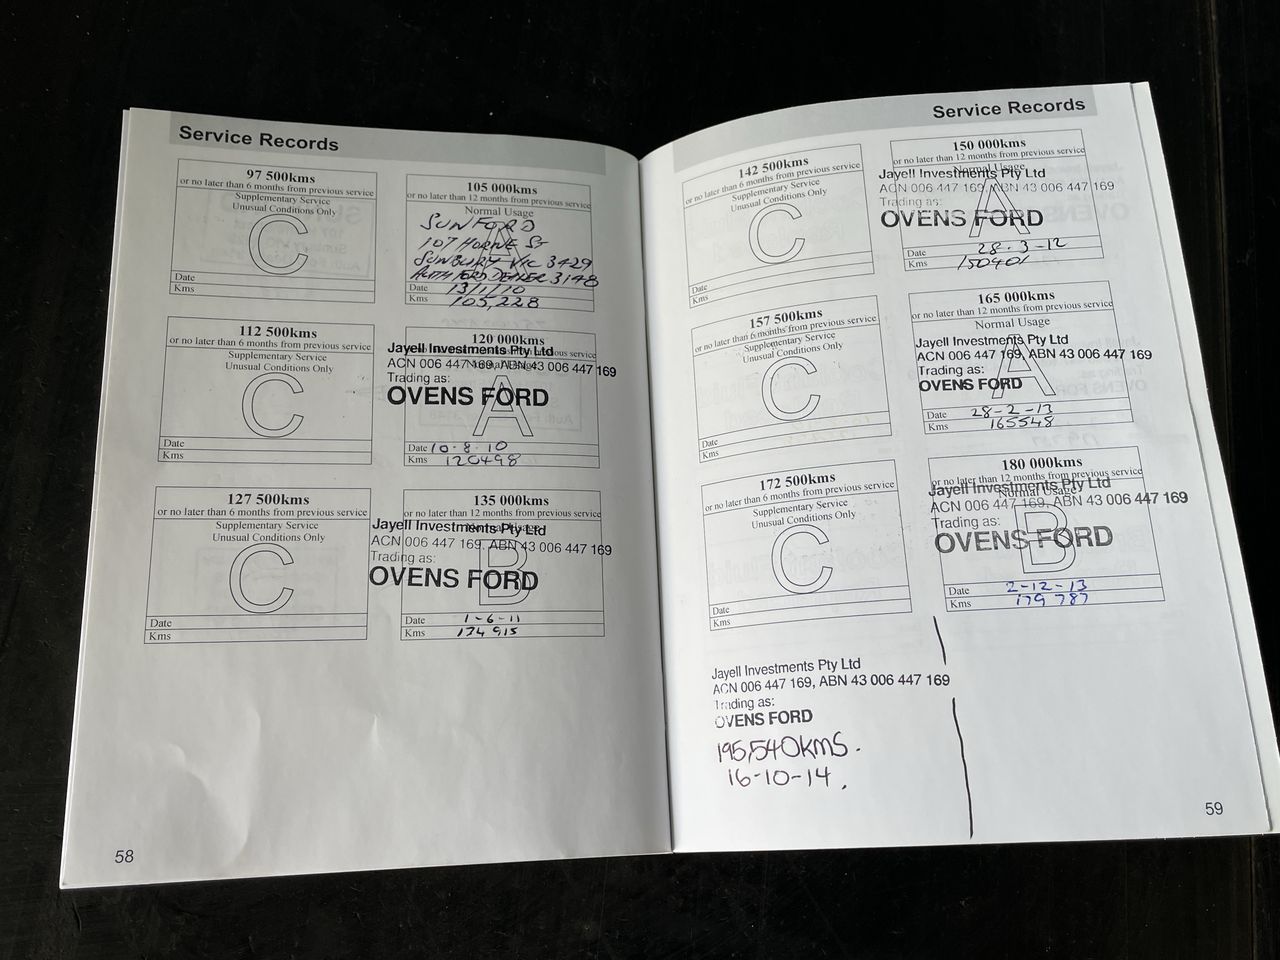 Service Records
97 500kms
or no later than 6 months from previous service
Supplementary Service
Unusual Conditions Only
C
Date
Kms
105 000kms
or no later than 12 months from previous service
Normal Usage
A
SUNFORD
107 HORNE ST
SUNBURY VIC 3429
AUTH FORD DEALER 3148
Date 13/1/10
Kms 105,228
112 500kms
or no later than 6 months from previous service
Supplementary Service
Unusual Conditions Only
C
Date
Kms
120 000kms
Jayell Investments Pty Ltd
ACN 006 447 169, ABN 43 006 447 169
Normal Usage
Trading as:
OVENS FORD
A
Date 10-8-10
Kms 120498
127 500kms
or no later than 6 months from previous service
Supplementary Service
Unusual Conditions Only
C
Date
Kms
135 000kms
or no later than 12 months from previous service
Normal Usage
Jayell Investments Pty Ltd
ACN 006 447 169, ABN 43 006 447 169
Trading as:
OVENS FORD
B
Date 1-6-11
Kms 134 915
58
Service Records
142 500kms
or no later than 6 months from previous service
Supplementary Service
Unusual Conditions Only
C
Date
Kms
150 000kms
or no later than 12 months from previous service
Normal Usage
Jayell Investments Pty Ltd
ACN 006 447 169, ABN 43 006 447 169
Trading as:
OVENS FORD
A
Date 28-3-12
Kms 150401
157 500kms
or no later than 6 months from previous service
Supplementary Service
Unusual Conditions Only
C
Date
Kms
165 000kms
or no later than 12 months from previous service
Normal Usage
Jayell Investments Pty Ltd
ACN 006 447 169, ABN 43 006 447 169
Trading as:
OVENS FORD
A
Date 28-2-13
Kms 165548
172 500kms
or no later than 6 months from previous service
Supplementary Service
Unusual Conditions Only
C
Date
Kms
180 000kms
or no later than 12 months from previous service
Normal Usage
Jayell Investments Pty Ltd
ACN 006 447 169, ABN 43 006 447 169
Trading as:
OVENS FORD
B
Date 2-12-13
Kms 179 787
Jayell Investments Pty Ltd
ACN 006 447 169, ABN 43 006 447 169
Trading as:
OVENS FORD
195,540KMS.
16-10-14.
59